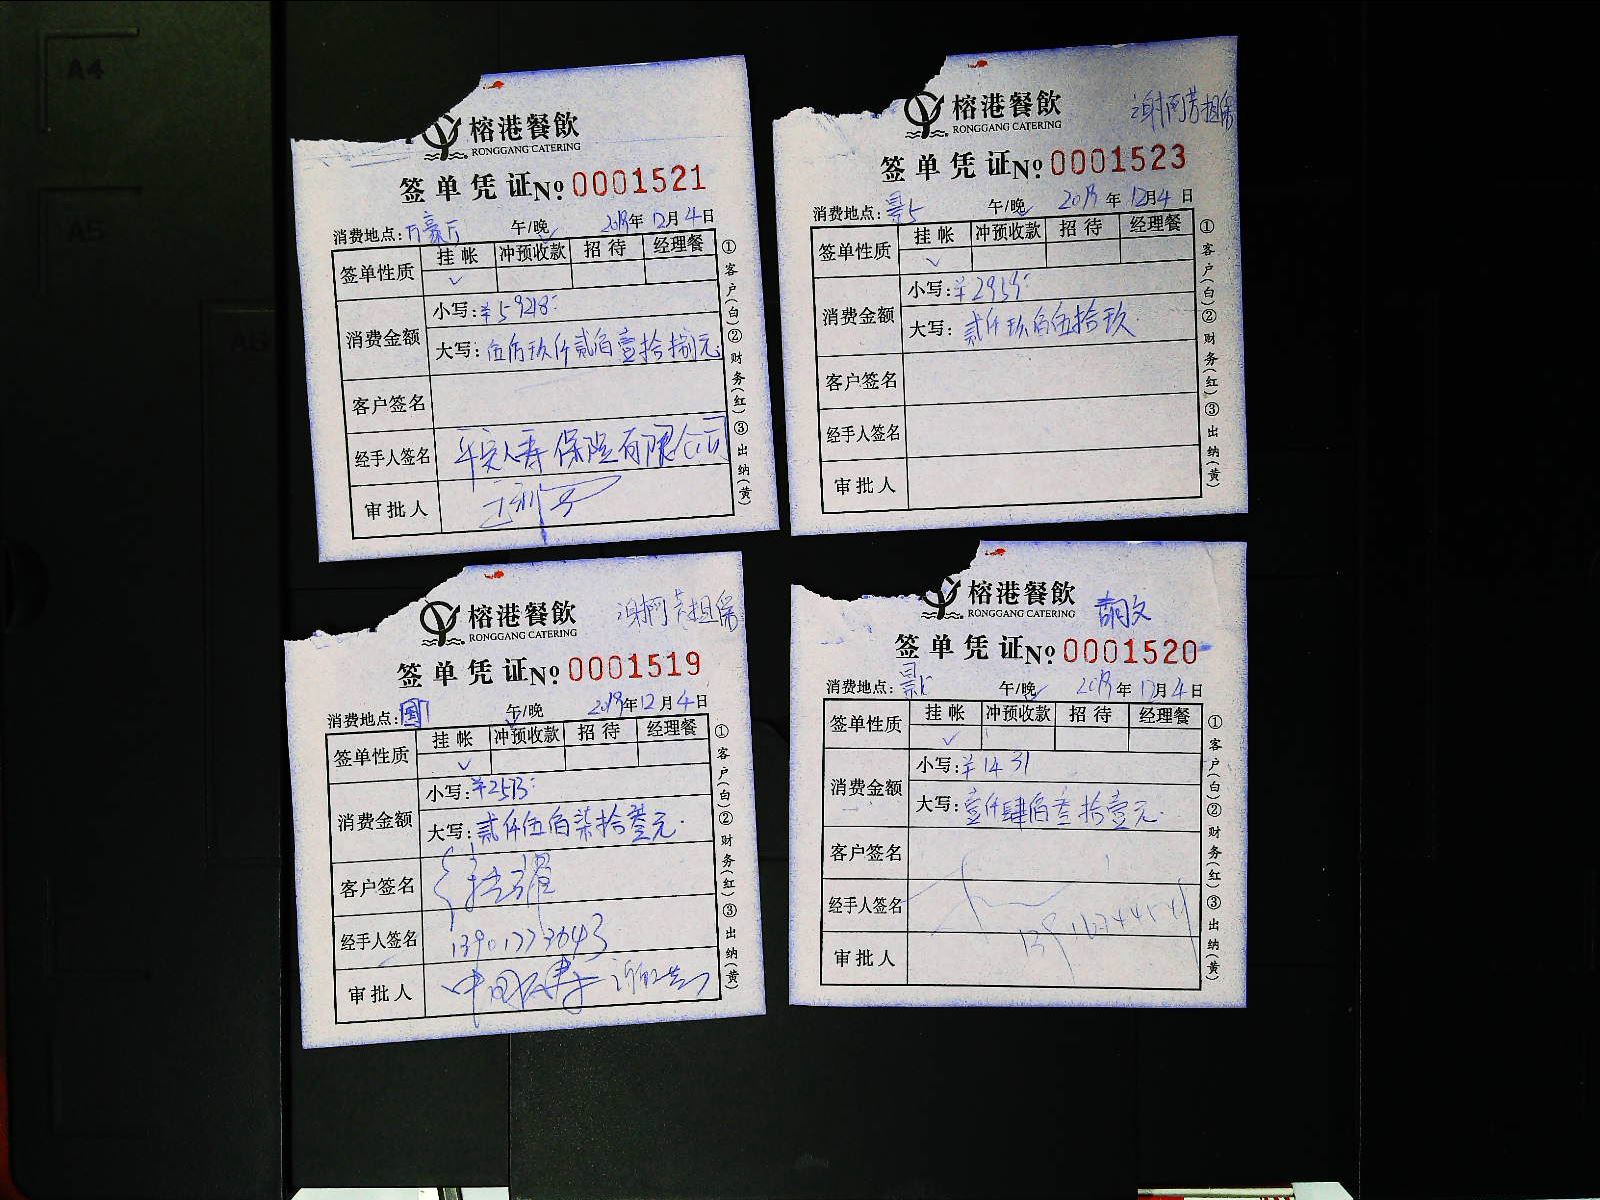 A4
A5
榕港餐飲
RONGGANG CATERING
签单凭证 № 0001521
消费地点: 万豪厅 午/晚 2019年12月4日
签单性质 挂帐 冲预收款 招待 经理餐
消费金额 小写:¥59218:
大写: 伍仟玖仟贰佰壹拾捌元
客户签名
经手人签名 平安人寿保险有限公司
审批人
①客户(白)②财务(红)③出纳(黄)
榕港餐飲
RONGGANG CATERING
谢阿芳担保
签单凭证 № 0001523
消费地点: 午/晚 2019年12月4日
签单性质 挂帐 冲预收款 招待 经理餐
消费金额 小写:¥2959:
大写: 贰仟玖佰伍拾玖
客户签名
经手人签名
审批人
①客户(白)②财务(红)③出纳(黄)
榕港餐飲
RONGGANG CATERING
谢阿芳担保
签单凭证 № 0001519
消费地点: 午/晚 2019年12月4日
签单性质 挂帐 冲预收款 招待 经理餐
消费金额 小写:¥2573:
大写: 贰仟伍佰柒拾叁元
客户签名
经手人签名
审批人 中国人寿
①客户(白)②财务(红)③出纳(黄)
榕港餐飲
RONGGANG CATERING
签单凭证 № 0001520
消费地点: 午/晚 2019年12月4日
签单性质 挂帐 冲预收款 招待 经理餐
消费金额 小写:¥1431
大写: 壹仟肆佰叁拾壹元
客户签名
经手人签名
审批人
①客户(白)②财务(红)③出纳(黄)